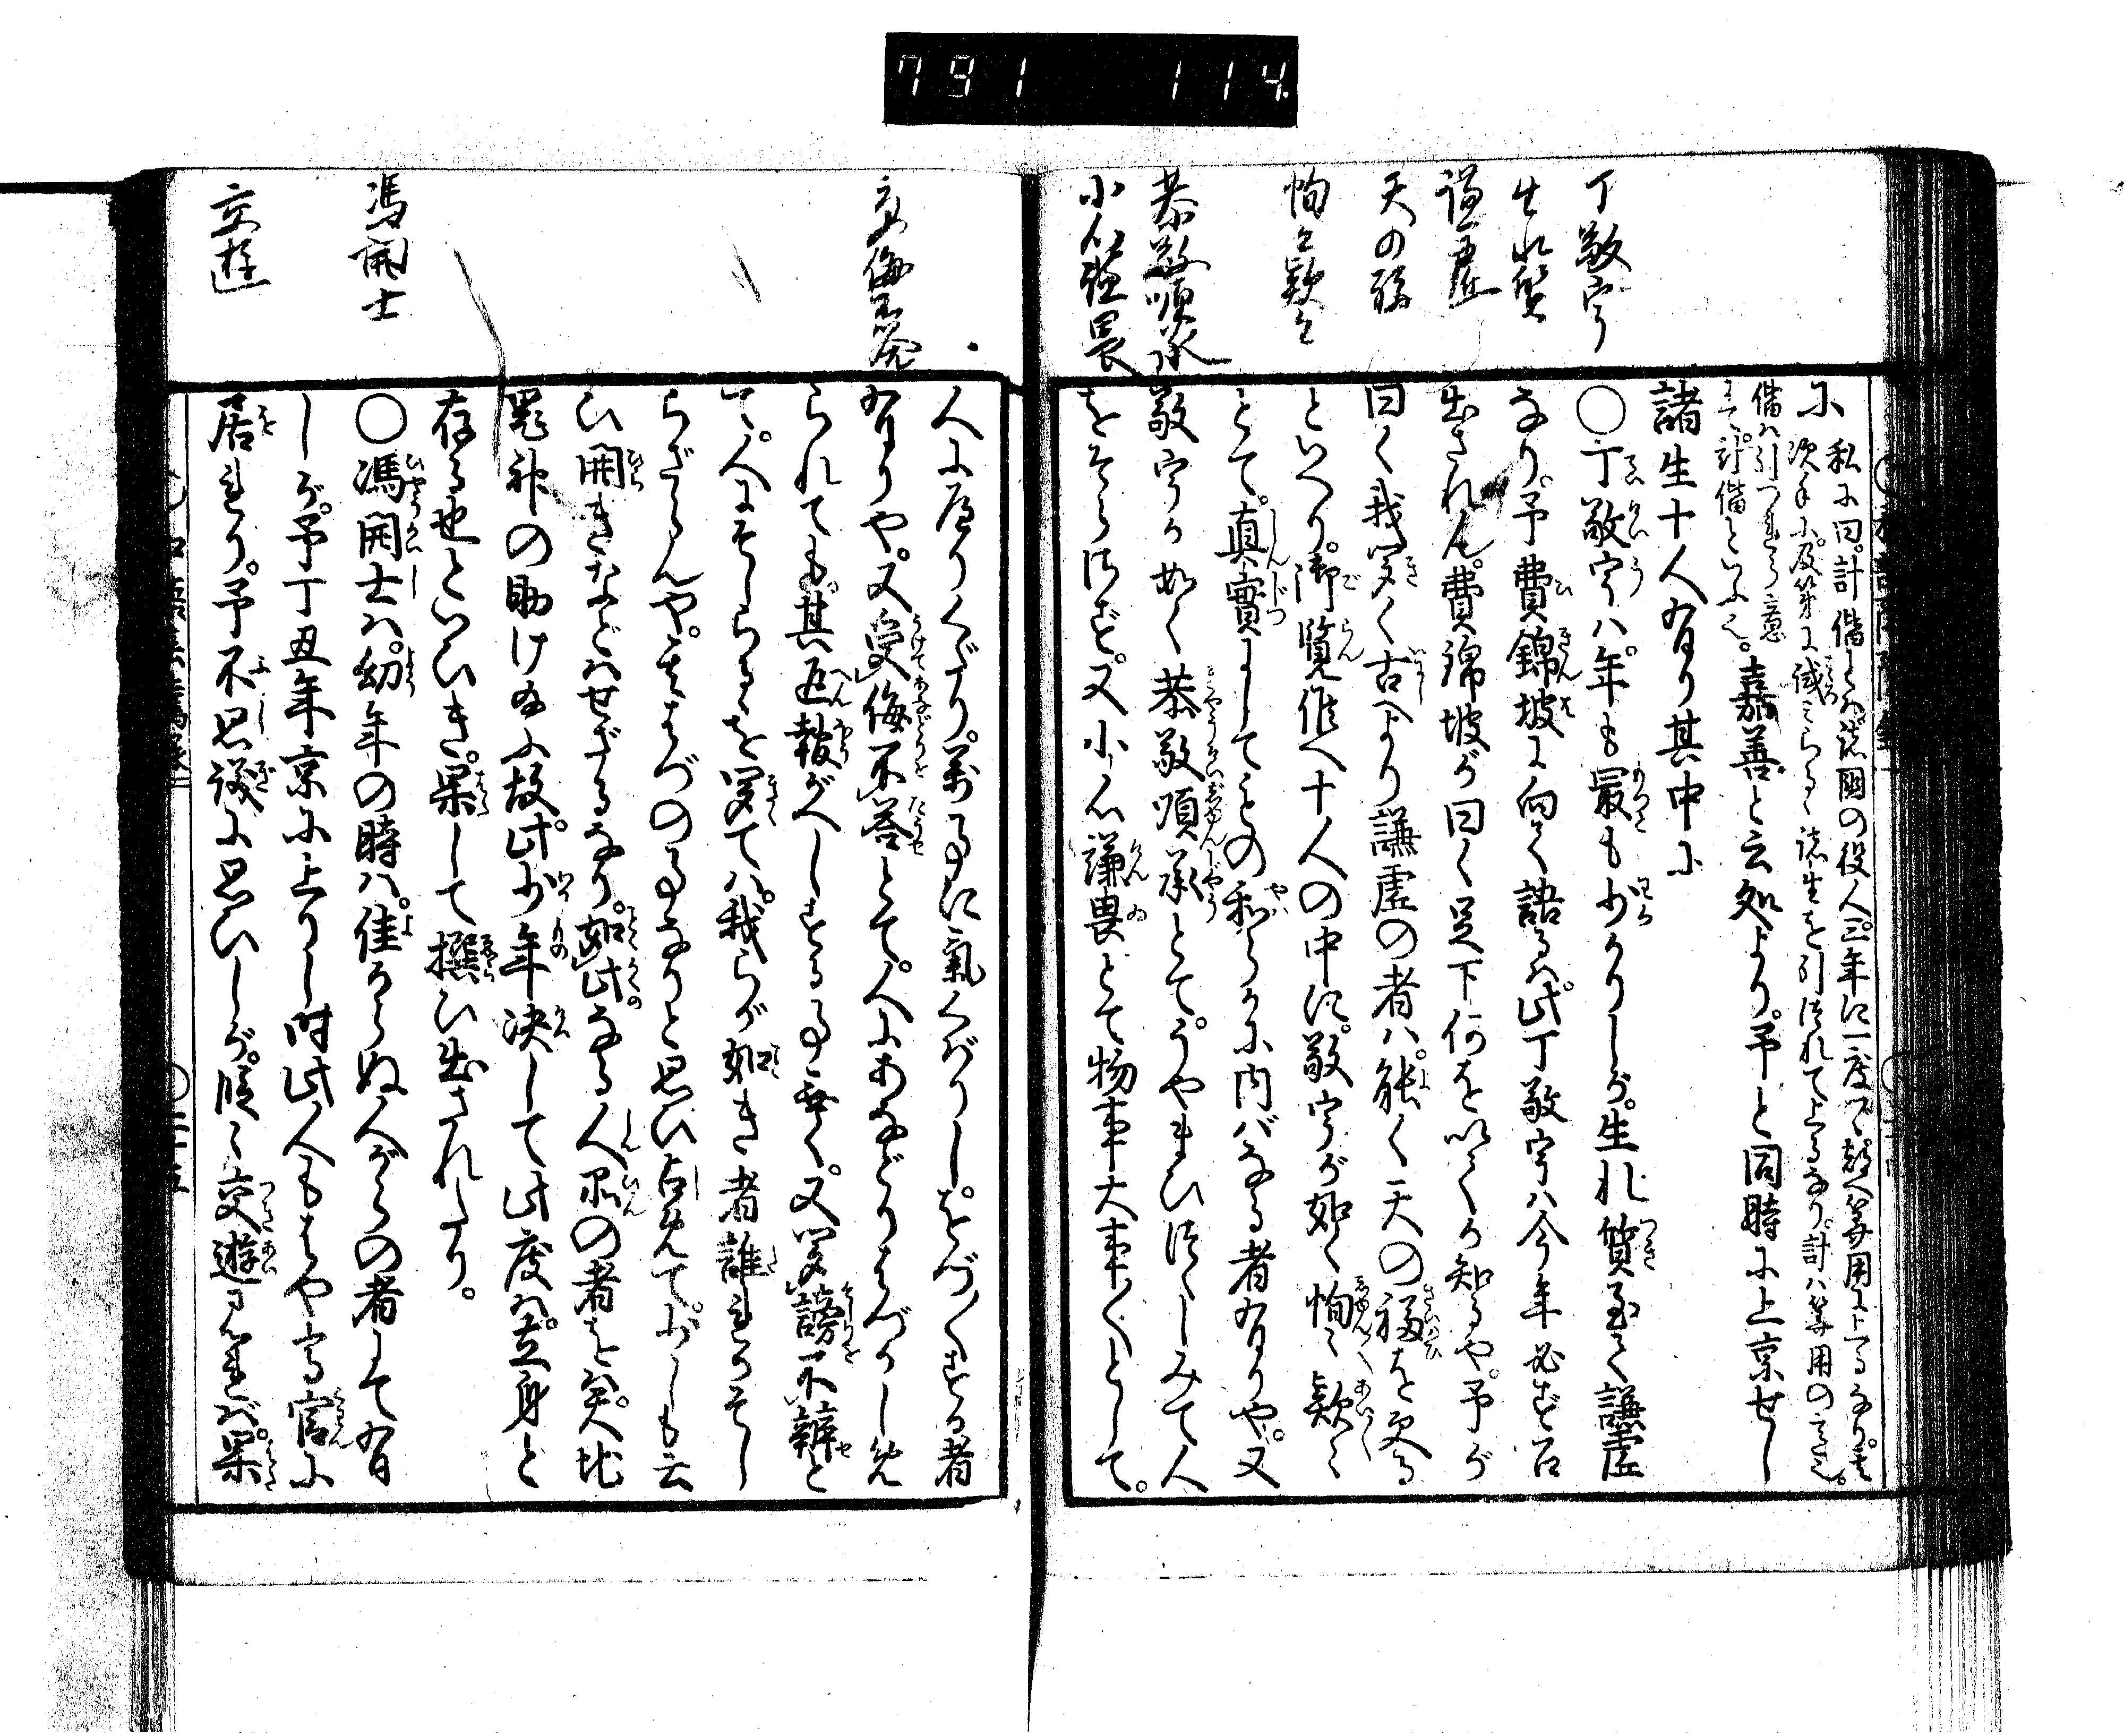 791 114.
丁敬宇
生れ質
謙虚
天の福
恂々款々
恭敬順承
小心謙畏
に 私に曰。計偕とは諸国の役人三年に一度づゝ都へ算用に上るなり。其
次手に。及第に試みらるゝ諸生を引つれて上るなり。計ハ算用のこと也。
偕ハ引つれる意
にて。計偕といふ也。嘉善と云処より。予と同時に上京せし
諸生十人有り其中に
〇丁敬宇ハ。年も最も少かりしが。生れ質至て謙虚
なり。予費錦坡に向て語るハ。此丁敬宇ハ今年必ず召
出されん。費錦坡が曰く足下何を以てか知るや。予が
曰く我聞く古へより謙虚の者ハ能く天の福を受る
といへり。御覧候へ十人の中に。敬宇が如く恂々款々
とて。真実にしてもの和らかに内バなる者有りや。又
敬宇が如く恭敬順承とて。うやまひつゝしみて人
をそらさず。又小心謙畏とて物事大事〳〵として。
受侮不答
馮開士
交遊
人に degrees
有りや。又受侮不答とて。人にあなどりはづかしめ
られても。其返報がへしする事無く。又聞謗不辯と
て。人にそしらるゝを聞てハ。我らが如き者誰れかそし
らざらんや。其はづの事なりと思ひ占めて。少しも云
ひ開きなどハせざるなり。如此なる人品の者をバ。天地
鬼神の助け玉ふ故。此少年決して此度ハ立身と
存る也といひき。果して撰ひ出されたり。
〇馮開士ハ。幼年の時ハ。佳からぬ人がらの者にて有
しが。予丁丑年京に上りし時此人もはや官に
居れり。予不思議に思ひしが。段々交遊見れば。果